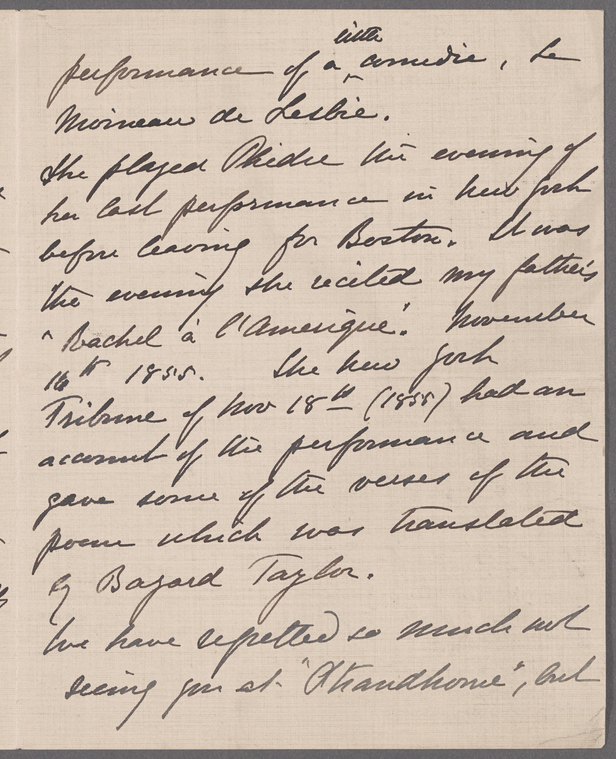 performance of a little comedie, Le
Moineau de Lesbie.
She played Phédre the evening of
her last performance in New York
before leaving for Boston. It was
the evening she recited my father's
"Rachel à l'Amerique". November
16th 1855. The New York
Tribune of Nov 18th (1855) had an
account of the performance and
gave some of the verses of the
poem which was translated
by Bayard Taylor.
We have regretted so much not
seeing you at "Strandhome", but